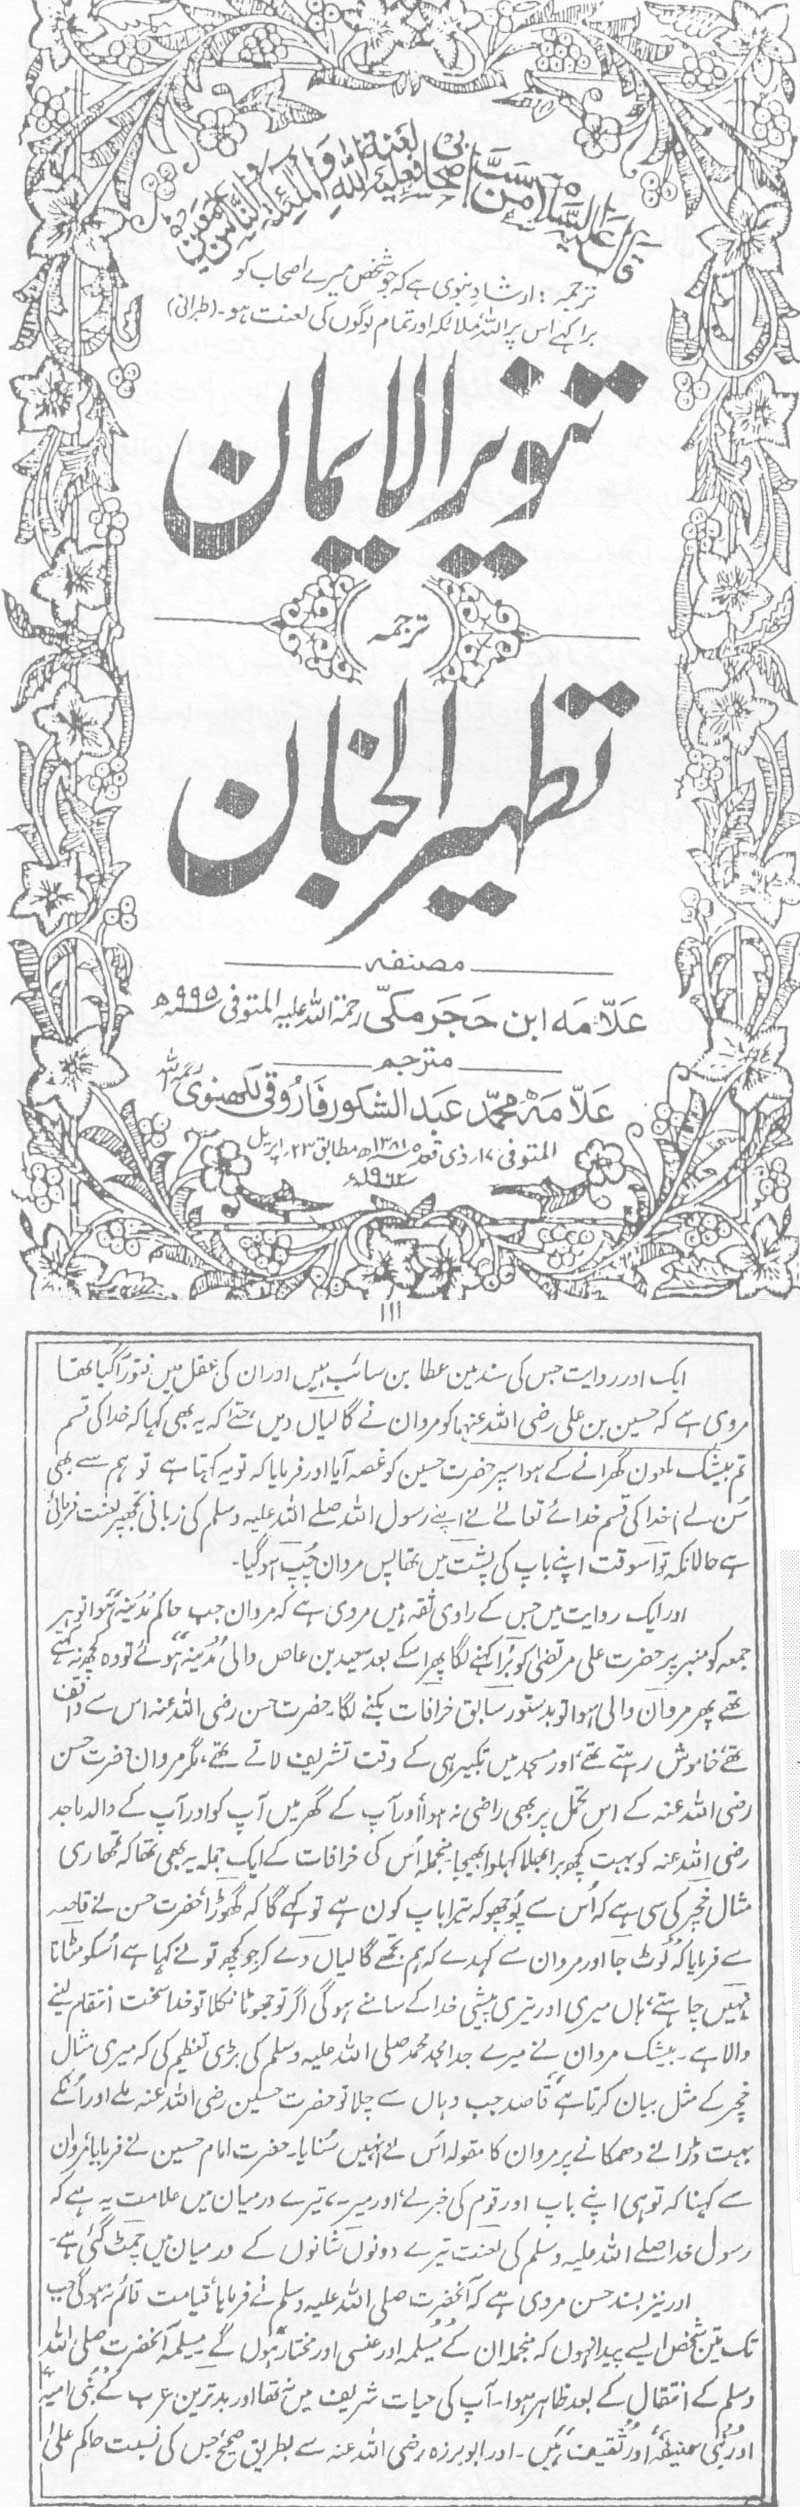 قال علیه السلام من سب اصحابی فعلیه لعنة الله والملئکة والناس اجمعین
ترجمہ: ارشادِ نبوی ہے کہ جو شخص میرے اصحاب کو
برا کہے اس پر اللہ، ملائکہ اور تمام لوگوں کی لعنت ہو۔ (طبرانی)
تنویر الایمان
ترجمہ
تطہیر الجنان
مصنفہ
علّامہ ابن حجر مکّی رحمۃ اللہ علیہ المتوفی ۹۹۵ھ
مترجم
علّامہ محمد عبد الشکور فاروقی لکھنوی رحمہ اللہ
المتوفی ۱۷؍ ذی قعدہ ۱۳۸۱ھ مطابق ۲۳؍ اپریل
۱۹۶۲ء
۱۱۱
ایک اور روایت جس کی سند مین عطا بن سائب ہیں اور ان کی عقل میں فتور آگیا تھا
مروی ہے کہ حسین بن علی رضی اللہ عنہما کو مروان نے گالیاں دیں، حتے کہ یہ بھی کہا کہ خدا کی قسم
تم بیشک ملعون گھرانے کے ہو اسپر حضرت حسین کو غصہ آیا اور فرمایا کہ تو یہ کہتا ہے تو ہم سے بھی
سُن لے! خدا کی قسم خدائے تعالےٰ نے اپنے رسول اللہ صلے اللہ علیہ وسلم کی زبانی تجھپر لعنت فرمائی
ہے حالانکہ تو اسوقت اپنے باپ کی پشت میں تھا پس مروان چُپ ہو گیا۔
اور ایک روایت میں جس کے راوی ثقہ ہیں مروی ہے کہ مروان جب حاکم مُدینہ ہوا تو ہر
جمعہ کو منبر پر حضرت علی مرتضیٰ کو بُرا کہنے لگا پھر اسکے بعد سعید بن عاص والی مُدینہ ہوئے تو وہ کچھ نہ کہتے
تھے پھر مروان والی ہوا تو بدستور سابق خرافات بکنے لگا۔ حضرت حسن رضی اللہ عنہ اس سے واقف
تھے، خاموش رہتے تھے، اور مسجد میں تکبیر ہی کے وقت تشریف لاتے تھے، مگر مروان حضرت حسن
رضی اللہ عنہ کے اس تحمل پر بھی راضی نہ ہوا اور آپ کے گھر میں آپ کو اور آپ کے والد ماجد
رضی اللہ عنہ کو بہت کچھ برا بھلا کہلوا بھیجا، منجملہ اُس کی خرافات کے ایک جملہ یہ بھی تھا کہ تمھاری
مثال خچر کی سی ہے کہ اُس سے پوچھو کہ تیرا باپ کون ہے تو کہے گا کہ گھوڑا، حضرت حسن نے قاصد
سے فرمایا کہ لَوٹ جا اور مروان سے کہدے کہ ہم تجھے گالیاں دے کر جو کچھ تو نے کہا ہے اُسکو مٹانا
نہیں چاہتے، ہاں میری اور تیری پیشی خدا کے سامنے ہو گی اگر تو جھوٹا نکلا تو خدا سخت انتقام لینے
والا ہے۔ بیشک مروان نے میرے جد امجد محمد صلی اللہ علیہ وسلم کی بڑی تعظیم کی کہ میری مثال
خچر کے مثل بیان کرتا ہے، قاصد جب وہاں سے چلا تو حضرت حسین رضی اللہ عنہ ملے اور اُنکے
بہت ڈرانے دھمکانے پر مروان کا مقولہ اُس نے اُنہیں سُنایا۔ حضرت امام حسین نے فرمایا، مروان
سے کہنا کہ تو ہی اپنے باپ اور قوم کی خبر لے، اور میرے، تیرے درمیان میں علامت یہ ہے کہ
رسول خدا صلے اللہ علیہ وسلم کی لعنت تیرے دونوں شانوں کے درمیان میں چمٹ گئی ہے۔
اور نیز بسند حسن مروی ہے کہ آنحضرت صلی اللہ علیہ وسلم نے فرمایا، قیامت قائم نہ ہو گی جب
تک تیس شخص ایسے پیدا نہوں کہ منجملہ ان کے مُسیلمہ اور عنسی اور مختار ہوں گے۔ مسیلمہ آنحضرت صلی اللہ
وسلم کے انتقال کے بعد ظاہر ہوا۔ آپ کی حیات شریف میں نہ تھا اور بدترین عرب کے بُنی امیّہ
اور بُنی حنیفہ اور ثقیف ہیں۔ اور ابو برزہ رضی اللہ عنہ سے بطریق صحیح جس کی نسبت حاکم علیٰ